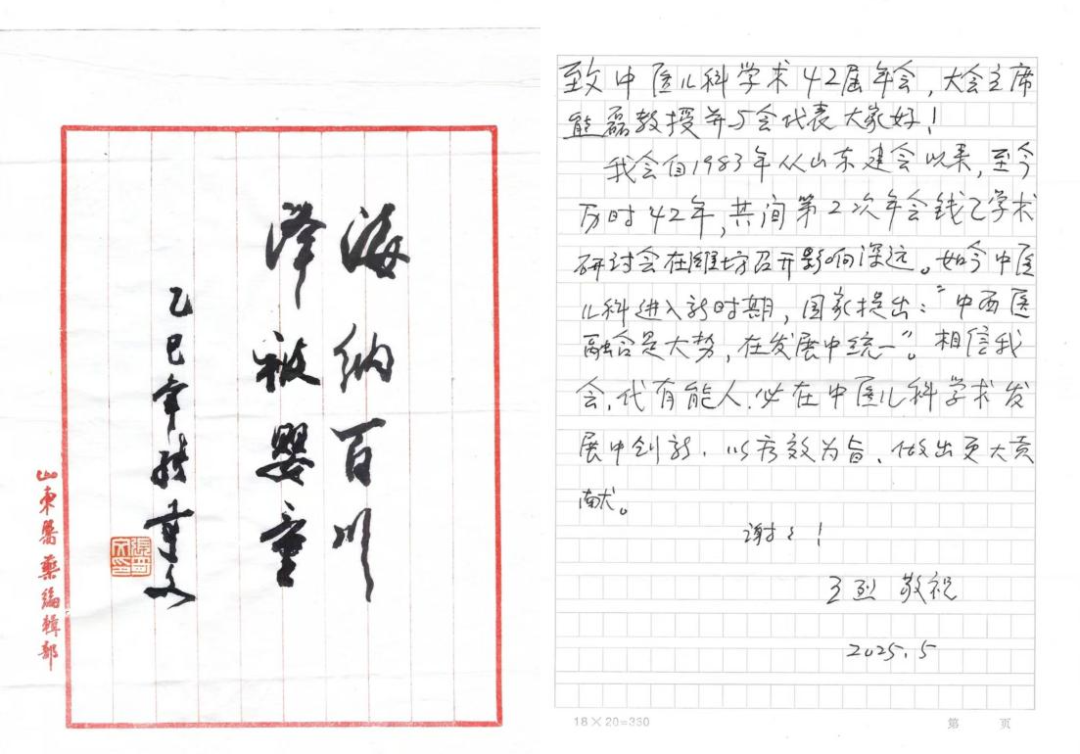 海纳百川
泽被婴童
乙巳年张奇文
山東醫藥編輯部
致中医儿科学术42届年会,大会主席
熊磊教授并与会代表大家好!
我会自1983年从山东建会以来,至今
历时42年,其间第2次年会钱乙学术
研讨会在潍坊召开影响深远。如今中医
儿科进入新时期,国家提出:“中西医
融合是大势,在发展中统一”。相信我
会,代有能人,必在中医儿科学术发
展中创新,以疗效为旨,做出更大贡
献。
谢谢!
王烈 敬祝
2025.5
第 页